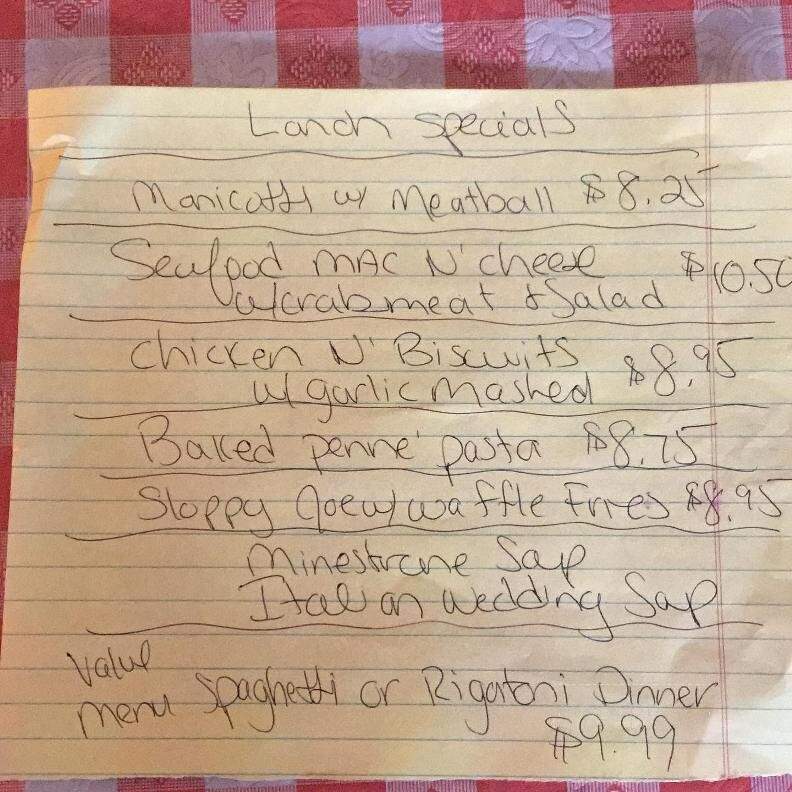 Lunch Specials
Manicotti w/ Meatball $8.25
Seafood MAC N' cheese $10.50
w/crabmeat & Salad
Chicken N' Biscuits $8.95
w/ garlic mashed
Baked penne' pasta $8.75
Sloppy Joe w/ waffle Fries $8.95
Minestrone Soup
Italian wedding Soup
Value
menu Spaghetti or Rigatoni Dinner
$9.99